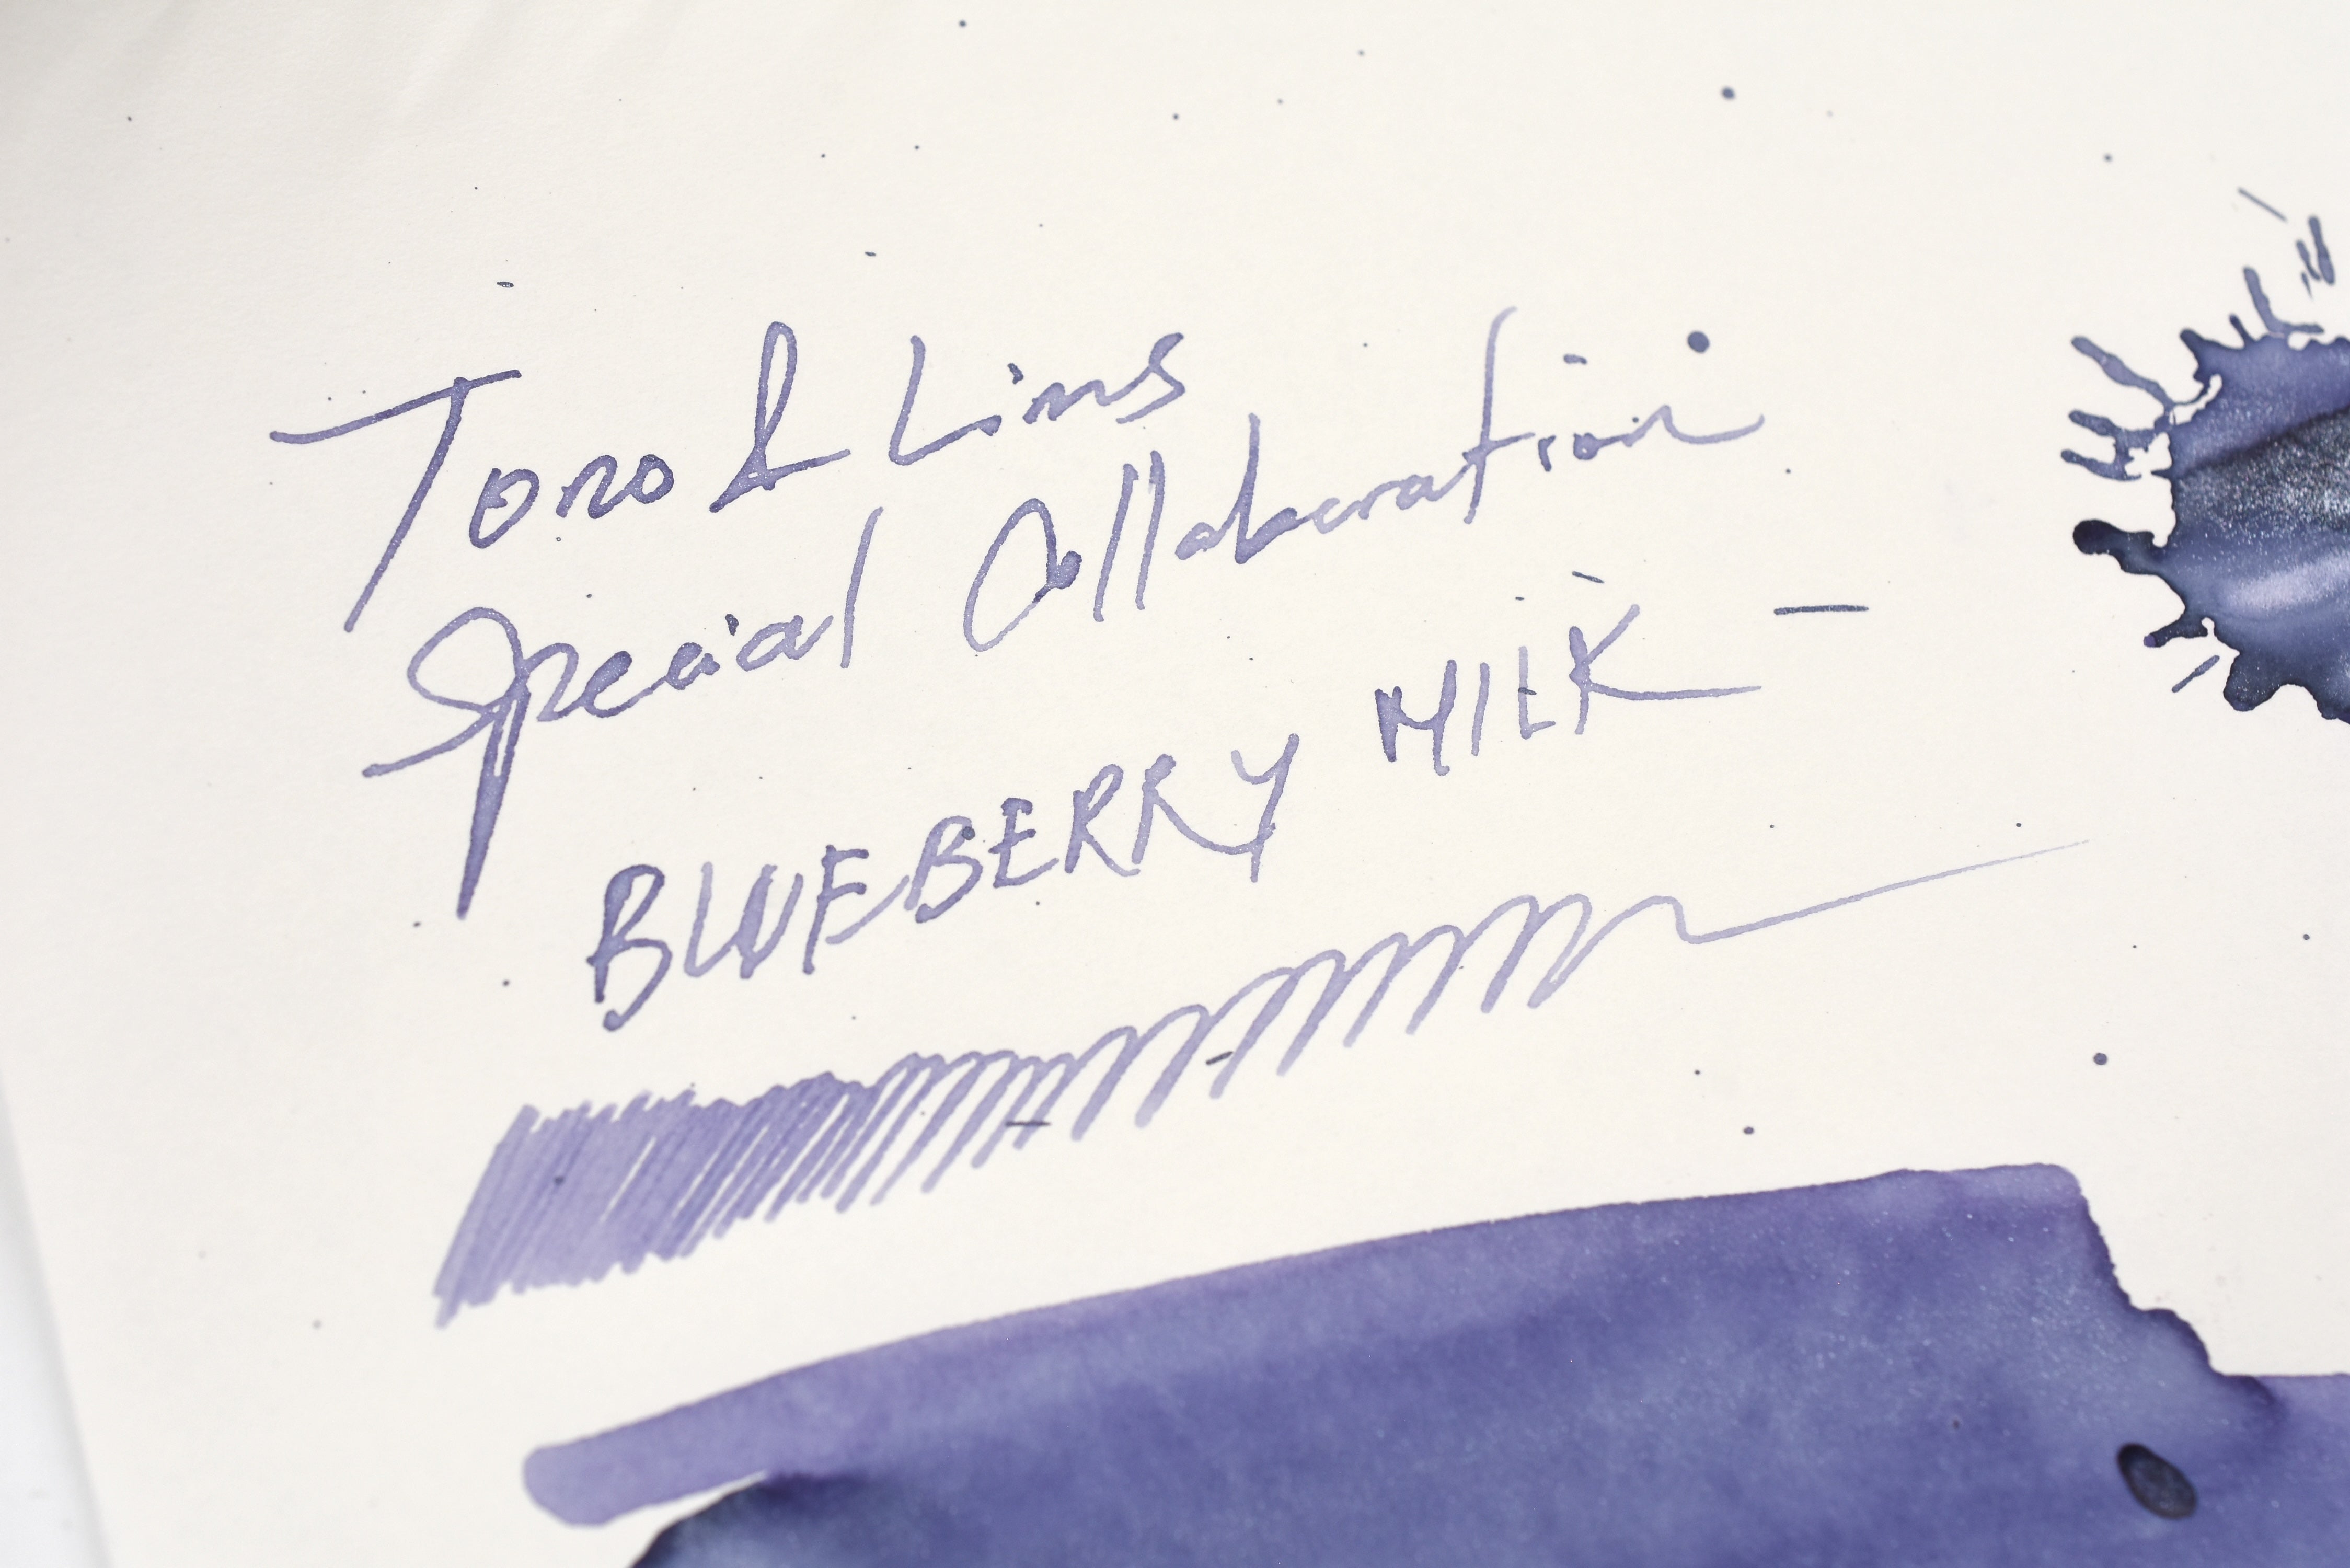 Tono & Lims
Special Collaboration
BLUEBERRY MILK